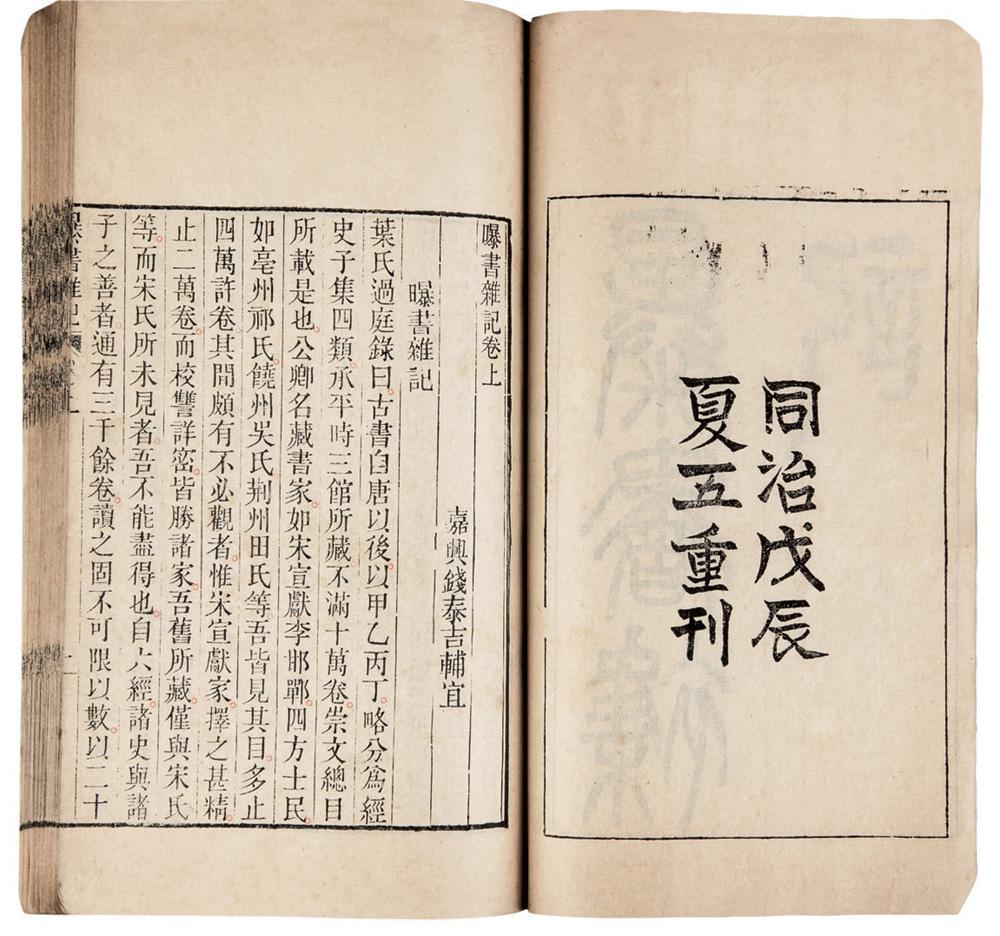 同治戊辰
夏五重刊
曝書雜記卷上
嘉興錢泰吉輔宜
曝書雜記
葉氏過庭錄曰。古書自唐以後。以甲乙丙丁。略分爲經
史子集四類。承平時三館所藏不滿十萬卷。崇文總目
所載是也。公卿名藏書家。如宋宣獻李邯鄲。四方士民。
如亳州祁氏饒州吳氏荆州田氏等。吾皆見其目。多止
四萬許卷。其間頗有不必觀者。惟宋宣獻家。擇之甚精。
止二萬卷。而校讐詳密。皆勝諸家。吾舊所藏。僅與宋氏
等。而宋氏所未見者。吾不能盡得也。自六經。諸史與諸
子之善者。通有三千餘卷。讀之固不可限以數。以二十
書雜記